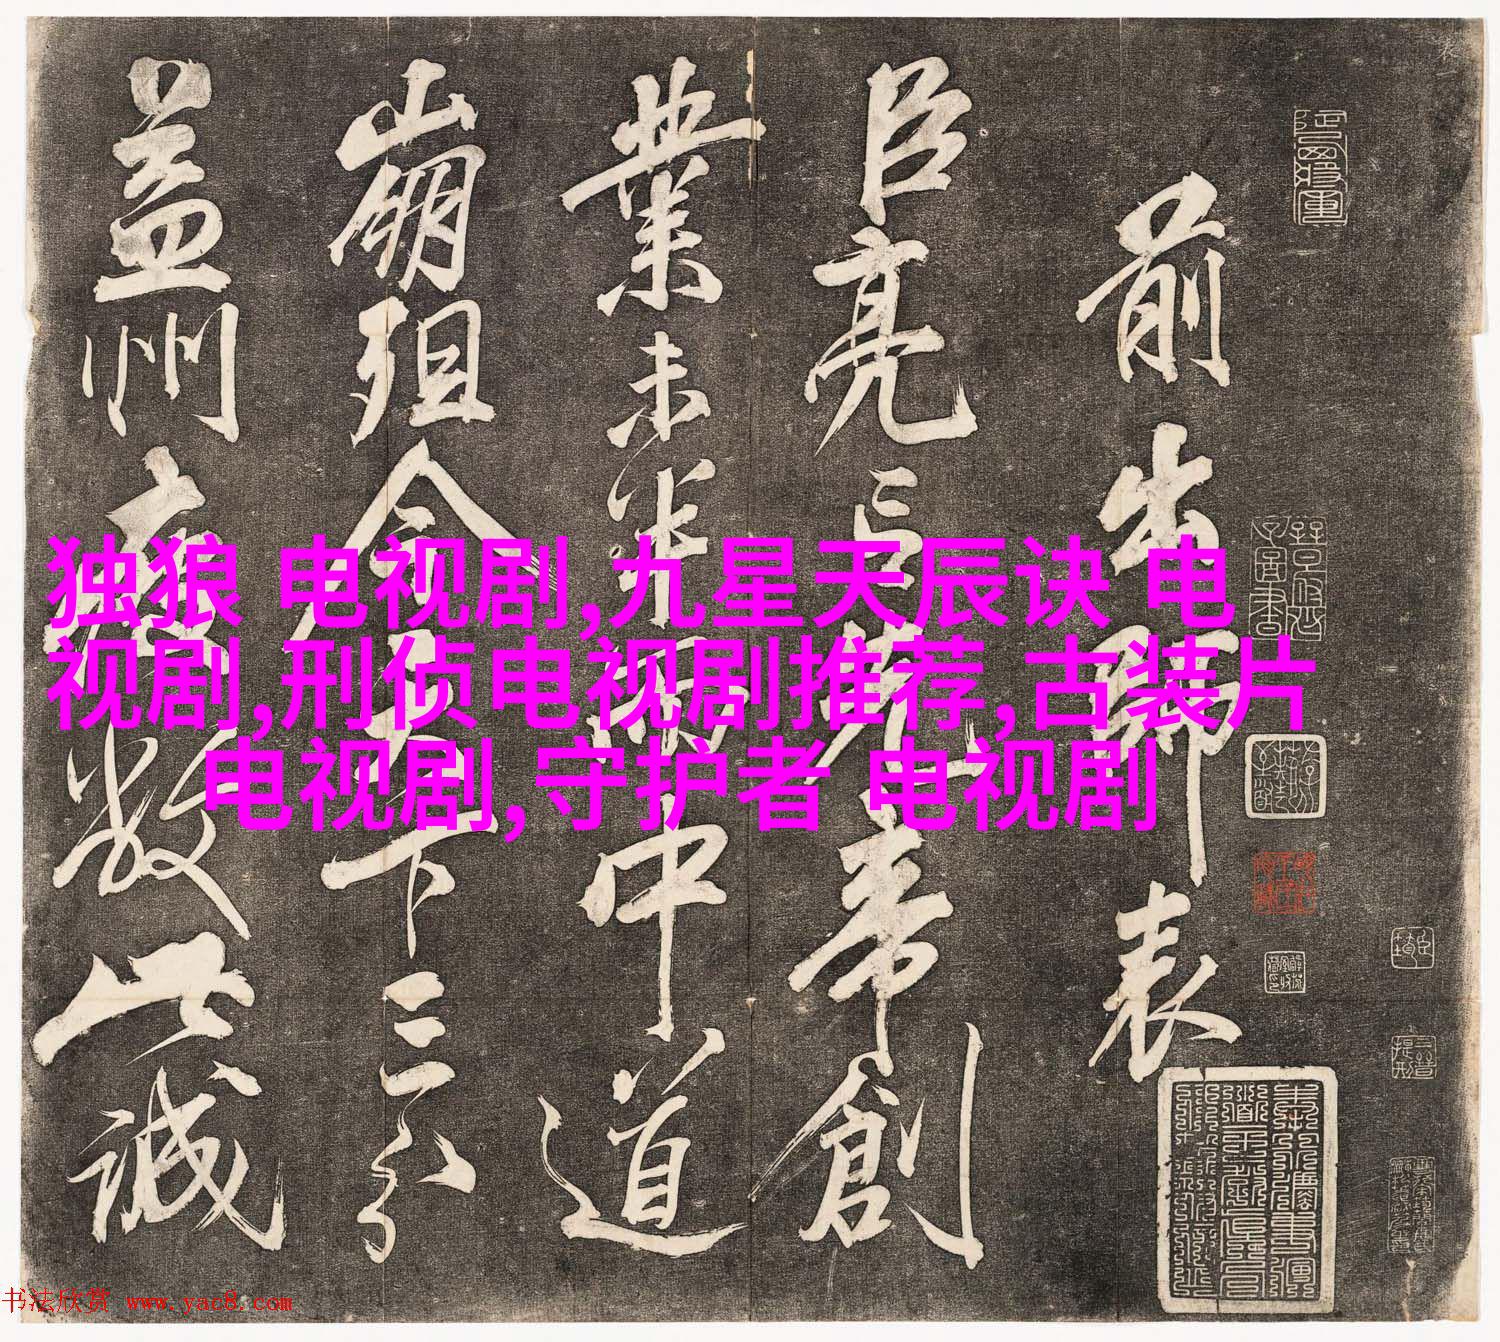 前出師表
臣亮言先帝創
業未半而中道
崩殂今天下三分
益州疲敝此誠
独狼 电视剧,九星天辰诀 电
视剧,刑侦电视剧推荐,古装片
电视剧,守护者 电视剧
书法欣赏 www.yac8.com